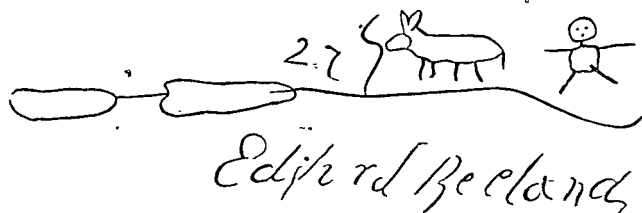 2.7
Edjhrd Beeland